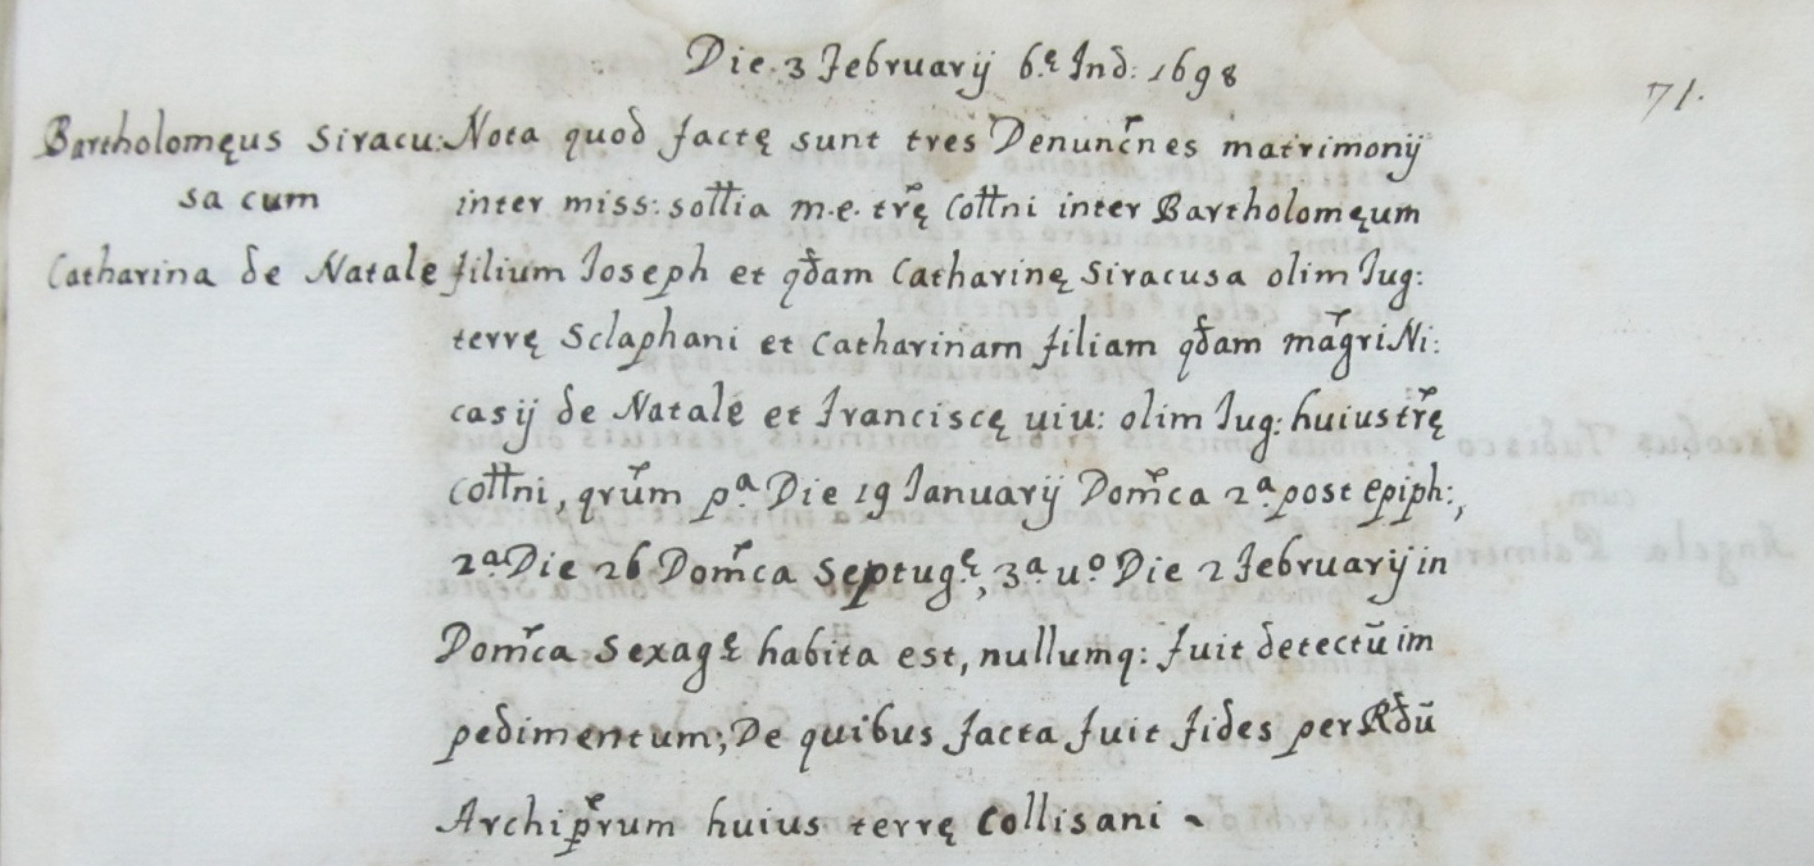 Die 3 Februarij 6.ę Ind: 1698
71.
Bartholomęus Siracu:
sa cum
Catharina de Natale
Nota quod factę sunt tres Denunc̃nes matrimonij
inter miss: sottia m.e. tr̃ę Cottni inter Bartholomęum
filium Ioseph et qd̃am Catharinę Siracusa olim Iug:
terrę Sclaphani et Catharinam filiam qd̃am mag̃ri Ni:
casij de Natale et Franciscę uiu: olim Iug: huius tr̃ę
Cottni, qrũm pª Die 19 Ianuarij Dom̃ca 2ª post epiph:,
2ª Die 26 Dom̃ca Septug.ę, 3ª uº Die 2 Februarij in
Dom̃ca Sexag.ę habita est, nullumq: fuit detectũ im
pedimentum; De quibus facta fuit fides per Rd̃ũ
Archip̃rum huius terrę Collisani